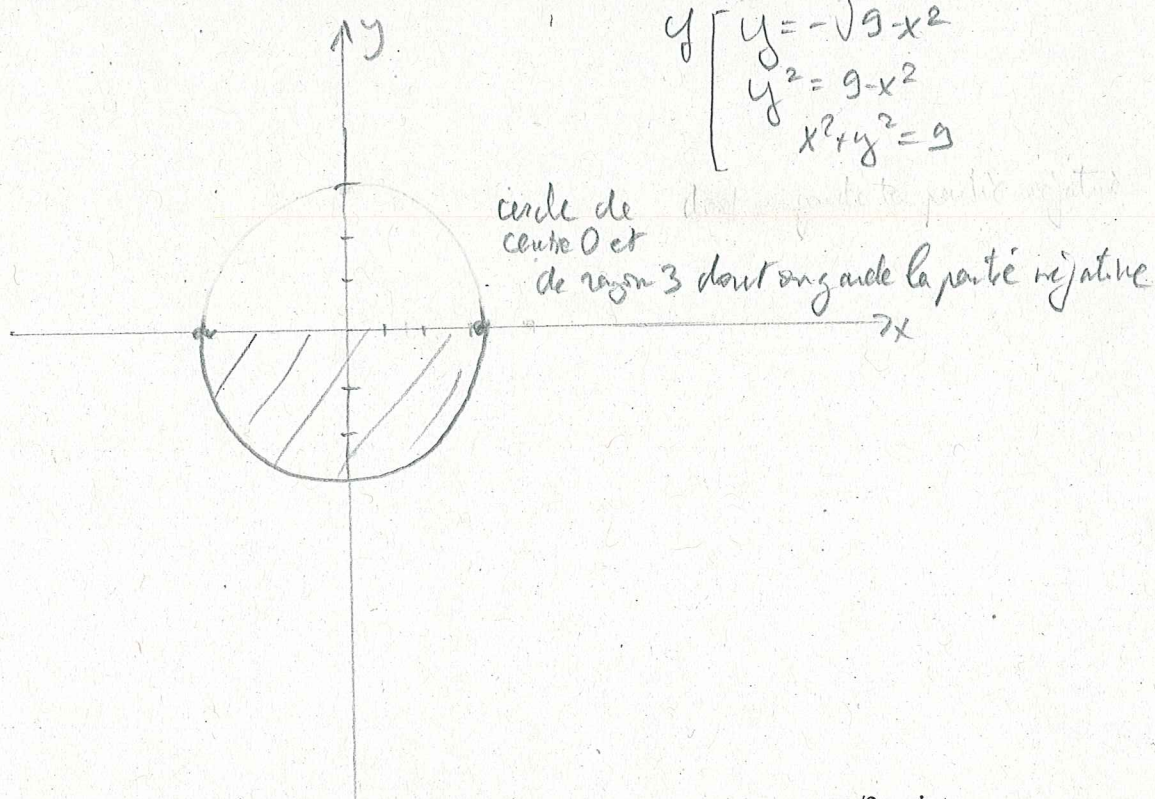 y
y y = -√9-x²
y² = 9-x²
x²+y² = 9
cercle de
centre O et
de rayon 3 dont on garde la partie négative
x